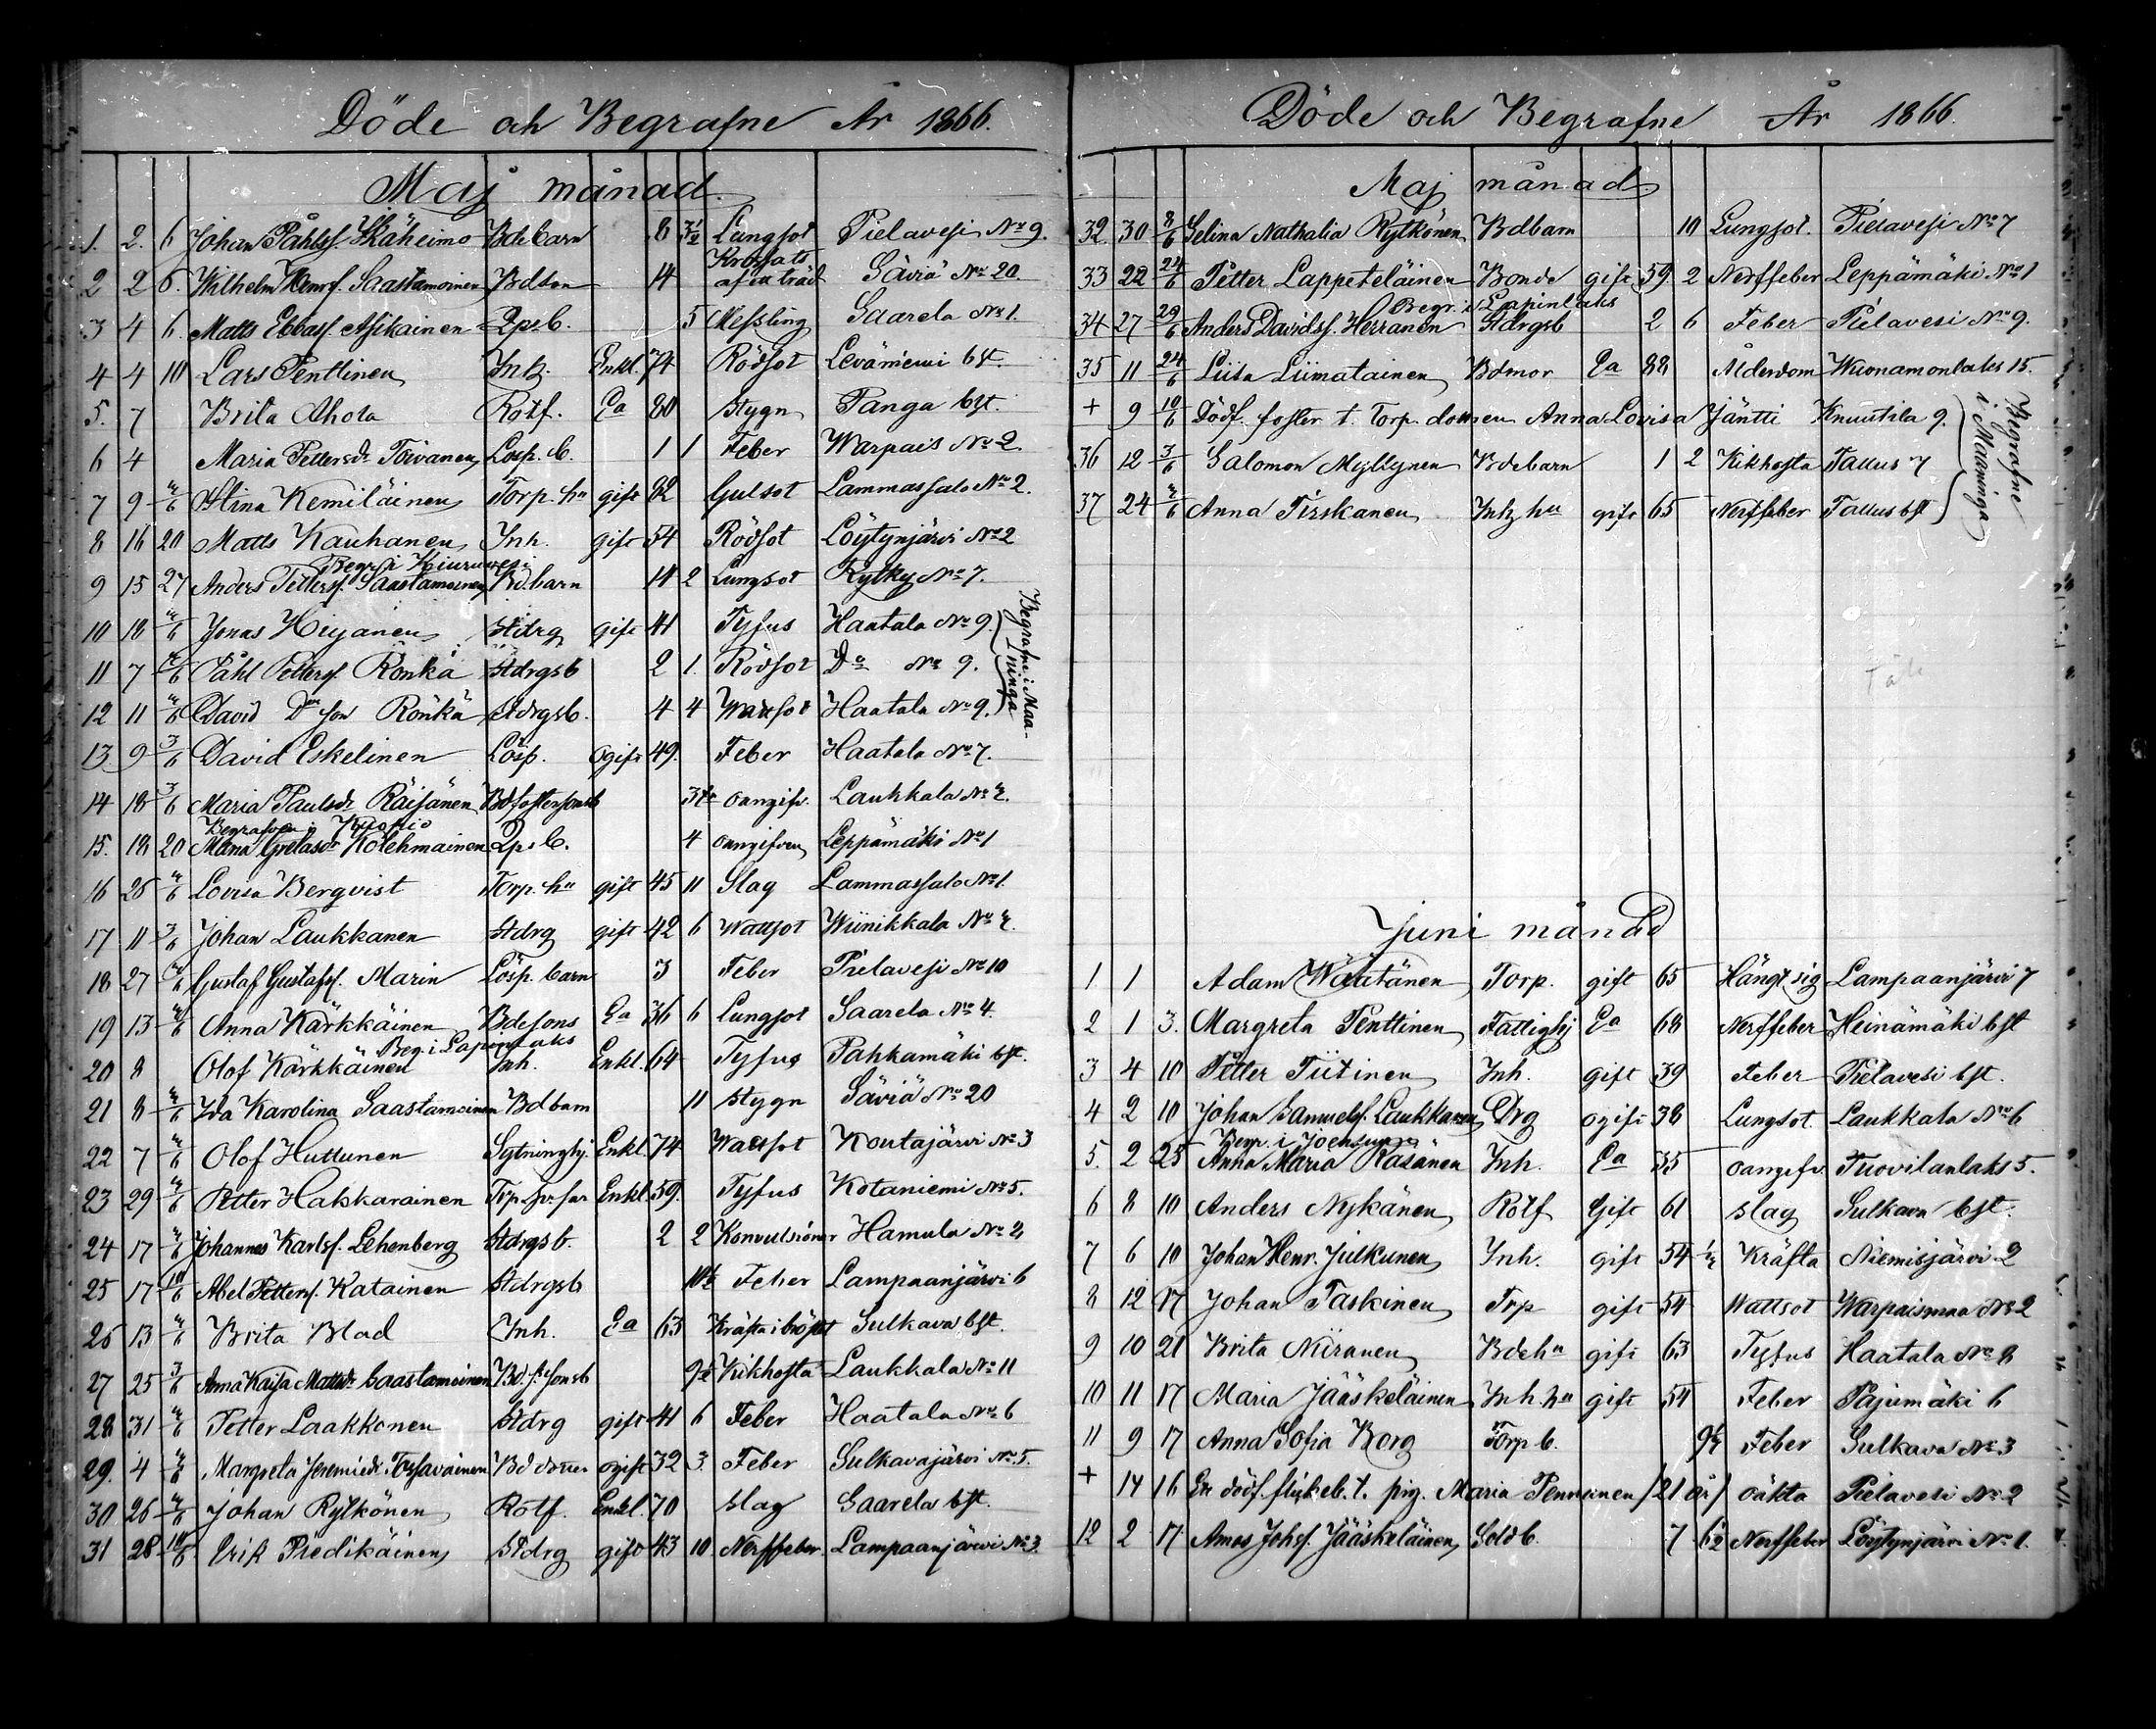 Döde och Begrafne År 1866.
Maj månad.
1. 2. 6 Johan Påhlss. Skäheimo Bdebarn 8 3½ Lungsot Pielavesi No 9.
2 2 6. Wilhelm Henrs. Saastamoinen Bdson 14 Krossats af ett träd Säviä No 20.
3 4 6. Matts Ebbass. Asikainen Qpsb. 5 Messling Saarela No 1.
4 4 10 Lars Penttinen Inh. Enkl. 74 Rödsot Leväniemi bst.
5. 7 Brita Ahola Rotf. Ea 80 Stygn Panga bst.
6 4 Maria Pettersdr Toivanen Lösp. b. 1 1 Feber Warpais No 2
7 9 4/6 Stina Kemiläinen Torp. hu gift 82 Gulsot Lammassalo No 2.
8 16 20 Matts Kauhanen Inh. gift 54 Rödsot Löytynjärvi No 2
Begr. i Kiuruvesi
9 15 27 Anders Petterss. Saastamoinen Bd.barn 11 2 Lungsot Kytky No 7.
10 18 4/6 Jonas Hirjanen Stdrg gift 41 Tyfus Haatala No 9.
11 7 4/6 Påhl Petterss. Rönkä Stdrgsb 2 1. Rödsot Do No 9.
12 11 4/6 David Dson Rönkä Stdrgsb. 4 4 Wattsot Haatala No 9.
Begrafne i Maaninga
13 9 3/6 David Eskelinen Lösp. Ogift 49. Feber Haatala No 7.
14 18 3/6 Maria Paulsdr Räisänen Bdfostersonsb oangifv. Laukkala No 2.
Begrafven i Kuopio
15. 18 20 Gretasdr Kolehmainen Qpsb. 4 oangifven Leppämäki No 1
16 26 4/6 Lovisa Bergvist Torp. hu gift 45 11 Slag Lammassalo No 1.
17 11 3/6 Johan Laukkanen Stdrg gift 42 6 Wattsot Wiinikkala No 2.
18 27 4/6 Gustaf Gustafss. Marin Lösp. barn 3 Feber Pielavesi No 10
19 13 4/6 Anna Kärkkäinen Bdesons Ea 36 6 Lungsot Saarela No 4.
Beg. i Lapinlaks
20 8 Olof Kärkkäinen Inh. Enkl. 64 Tyfus Pahkamäki bst.
21 8 4/6 Ida Karolina Saastamoinen Bdbarn 11 Stygn Säviä No 20
22 7 4/6 Olof Huttunen Sytninghj. Enkl. 74 Wattsot Koutajärvi No 3
23 29 4/6 Petter Hakkarainen Enkl. 59. Tyfus Kotaniemi No 5.
24 17 4/6 Johannes Karlss. Lehenberg Stdrgsb. 2 2 Konvulsioner Hamula No 2
25 17 10/6 Abel Petterss. Katainen Stdrgsb 10½ Feber Lampaanjärvi 6
26 13 4/6 Brita Blad Inh. Ea 63 Kräfta i bröstet Sulkava bst.
27 25 3/6 Anna Kaisa Mattsdr Saastamoinen Bd. s. sonsb 9½ Kikhosta Laukkala No 11
28 31 4/6 Petter Laakkonen Stdrg gift 41 6 Feber Haatala No 6
29. 4 4/6 Margreta Jeremiedr Tossavainen Bddotter ogift 32 3. Feber Sulkavajärvi No 5.
30 26 4/6 Johan Rytkönen Rotf. Enkl. 70 Slag Saarela bst.
31 28 10/6 Erik Predikäinen Stdrg gift 43 10 Nerffeber Lampaanjärvi No 3.
Döde och Begrafne År 1866.
Maj månad
32 30 8/6 Selina Nathalia Rytkönen Bdbarn 10 Lungsot. Pielavesi No 7
33 22 24/6 Petter Lappeteläinen Bonde gift 59. 2 Nerffeber Leppämäki No 1
Begr. i Lapinlaks
34 27 29/6 Anders Davidss. Herranen Stdrgsb 2 6 Feber Pielavesi No 9.
35 11 24/6 Liisa Liimatainen Bdmor Ea 88 Ålderdom Wuonamonlaks 15.
+ 9 10/6 Dödf. foster t. Torp. dottren Anna Lovisa Jäntti Knuutila 9.
36 12 3/6 Salomon Myllynen Bdebarn 1 2 Kikhosta Tallus 7
37 24 4/6 Anna Tirskanen Inh hu gift 65 Nerffeber Tallus bst
Begrafne i Maaninga
Juni månad
1. 1 Adam Väätänen Torp. gift 65 Hängt sig Lampaanjärvi 7
2 1 3. Margreta Penttinen Fattighj Ea 68 Nerffeber Heinämäki bst
3 4 10 Petter Tiitinen Inh. gift 39 Feber Pielavesi bst.
4 2 10 Johan Samuelss. Laukkanen Drg ogift 38 Lungsot Laukkala No 6
Begr. i Joensuu
5. 2 25 Anna Maria Räsänen Inh. Ea 35 oangifv. Tuovilanlaks 5.
6 8 10 Anders Nykänen Rotf Gift 61 Slag Sulkava bst.
7 6 10 Johan Henr. Julkunen Inh. gift 54 ½ Kräfta Niemisjärvi 2
8 12 17 Johan Taskinen Trp gift 54 Wattsot Warpaismaa No 2
9 10 21 Brita Niiranen Bdehu gift 63 Tyfus Haatala No 8
10 11 17 Maria Jääskeläinen Inh. hu gift 54 Feber Pajumäki 6
11 9 17 Anna Sofia Borg Torp b. 9½ Feber Sulkava No 3
+ 14 16 Ett dödf. flickeb. t. pig. Maria Pennanen /21 år/ oäkta Pielavesi No 2
12 2 17 Amos Johss. Jääskeläinen Sold b. 7 6½ Nerffeber Löytynjärvi No 1.